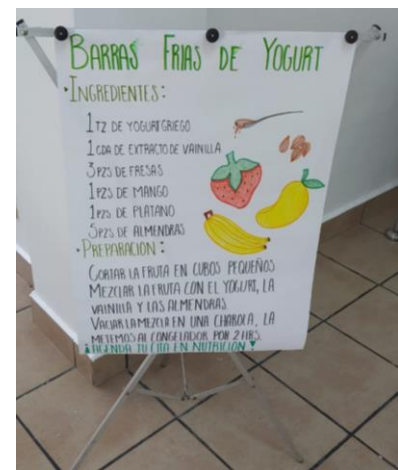 BARRAS FRIAS DE YOGURT
·INGREDIENTES:
1TZ DE YOGURT GRIEGO
1CDA DE EXTRACTO DE VAINILLA
3PZS DE FRESAS
1PZS DE MANGO
1PZS DE PLATANO
5PZS DE ALMENDRAS
·PREPARACION:
CORTAR LA FRUTA EN CUBOS PEQUEÑOS
MEZCLAR LA FRUTA CON EL YOGURT, LA
VAINILLA Y LAS ALMENDRAS.
VACIAR LA MEZCLA EN UNA CHAROLA, LA
METEMOS AL CONGELADOR POR 2 HRS.
¡AGENDA TU CITA EN NUTRICION!